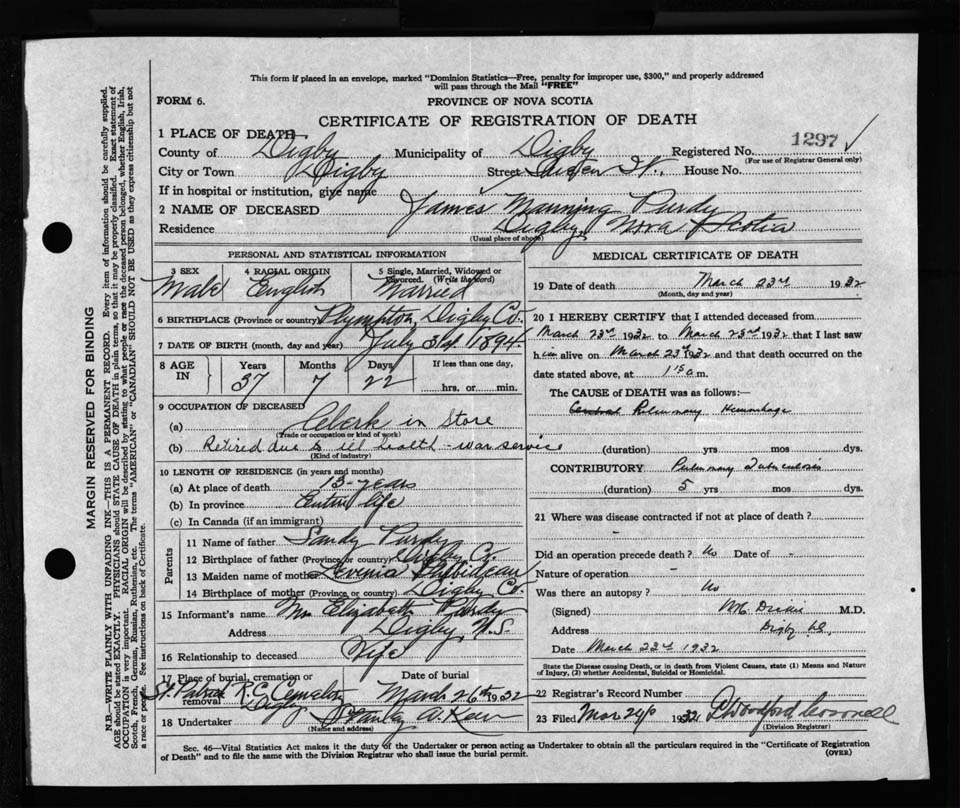 This form if placed in an envelope, marked "Dominion Statistics—Free, penalty for improper use, $300," and properly addressed
will pass through the Mail "FREE"
FORM 6.
PROVINCE OF NOVA SCOTIA
CERTIFICATE OF REGISTRATION OF DEATH
1297
1 PLACE OF DEATH
County of Digby Municipality of Digby Registered No.
(For use of Registrar General only)
City or Town Digby Street St., House No.
If in hospital or institution, give name
2 NAME OF DECEASED James Manning Purdy
Residence Digby, Nova Scotia
(Usual place of abode)
PERSONAL AND STATISTICAL INFORMATION
3 SEX 4 RACIAL ORIGIN 5 Single, Married, Widowed or Divorced. (Write the word)
Male English Married
6 BIRTHPLACE (Province or country) Plympton, Digby Co.
7 DATE OF BIRTH (month, day and year) July 31st 1894
8 AGE IN Years Months Days If less than one day,
37 7 22 hrs. or min.
9 OCCUPATION OF DECEASED
(a) Clerk in Store
(Trade or occupation or kind of work)
(b) Retired due to ill health - war service
(Kind of industry)
10 LENGTH OF RESIDENCE (in years and months)
(a) At place of death 13 years
(b) In province Entire life
(c) In Canada (if an immigrant)
Parents
11 Name of father Sandy Purdy
12 Birthplace of father (Province or country) Digby Co.
13 Maiden name of mother Thibideau
14 Birthplace of mother (Province or country) Digby Co.
15 Informant's name Mrs Elizabeth Purdy
Address Digby, N.S.
16 Relationship to deceased Wife
17 Place of burial, cremation or removal Date of burial
St Patrick R.C. Cemetery March 26th 1932
Digby
18 Undertaker Stanley A.
(Name and address)
MEDICAL CERTIFICATE OF DEATH
19 Date of death March 23rd 1932
(Month, day and year)
20 I HEREBY CERTIFY that I attended deceased from
March 23rd 1932 to March 23rd 1932 that I last saw
him alive on March 23rd 1932 and that death occurred on the
date stated above, at 1:50 m.
The CAUSE of DEATH was as follows:—
Pulmonary Hemorrhage
(duration) yrs mos dys.
CONTRIBUTORY Pulmonary Tuberculosis
(duration) 5 yrs mos dys.
21 Where was disease contracted if not at place of death?
Did an operation precede death? No Date of -
Nature of operation -
Was there an autopsy? No
(Signed) M.D.
Address Digby N.S.
Date March 23rd 1932
State the Disease causing Death, or in death from Violent Causes, state (1) Means and Nature
of Injury, (2) whether Accidental, Suicidal or Homicidal.
22 Registrar's Record Number
23 Filed Mar 24 1932
(Division Registrar)
Sec. 46—Vital Statistics Act makes it the duty of the Undertaker or person acting as Undertaker to obtain all the particulars required in the "Certificate of Registration
of Death" and to file the same with the Division Registrar who shall issue the burial permit.
(OVER)
MARGIN RESERVED FOR BINDING
N.B.—WRITE PLAINLY WITH UNFADING INK—THIS IS A PERMANENT RECORD. Every item of information should be carefully supplied.
AGE should be stated EXACTLY. PHYSICIANS should STATE CAUSE OF DEATH in plain terms, so that it may be properly classified. Exact statement of
OCCUPATION is very important. RACIAL ORIGIN will be described by stating to what people or race the deceased person belonged, whether English, Irish,
Scotch, French, German, Russian, Ruthenian, etc. The terms "AMERICAN" or "CANADIAN" SHOULD NOT BE USED as they express citizenship but not
a race or people. See instructions on back of Certificate.